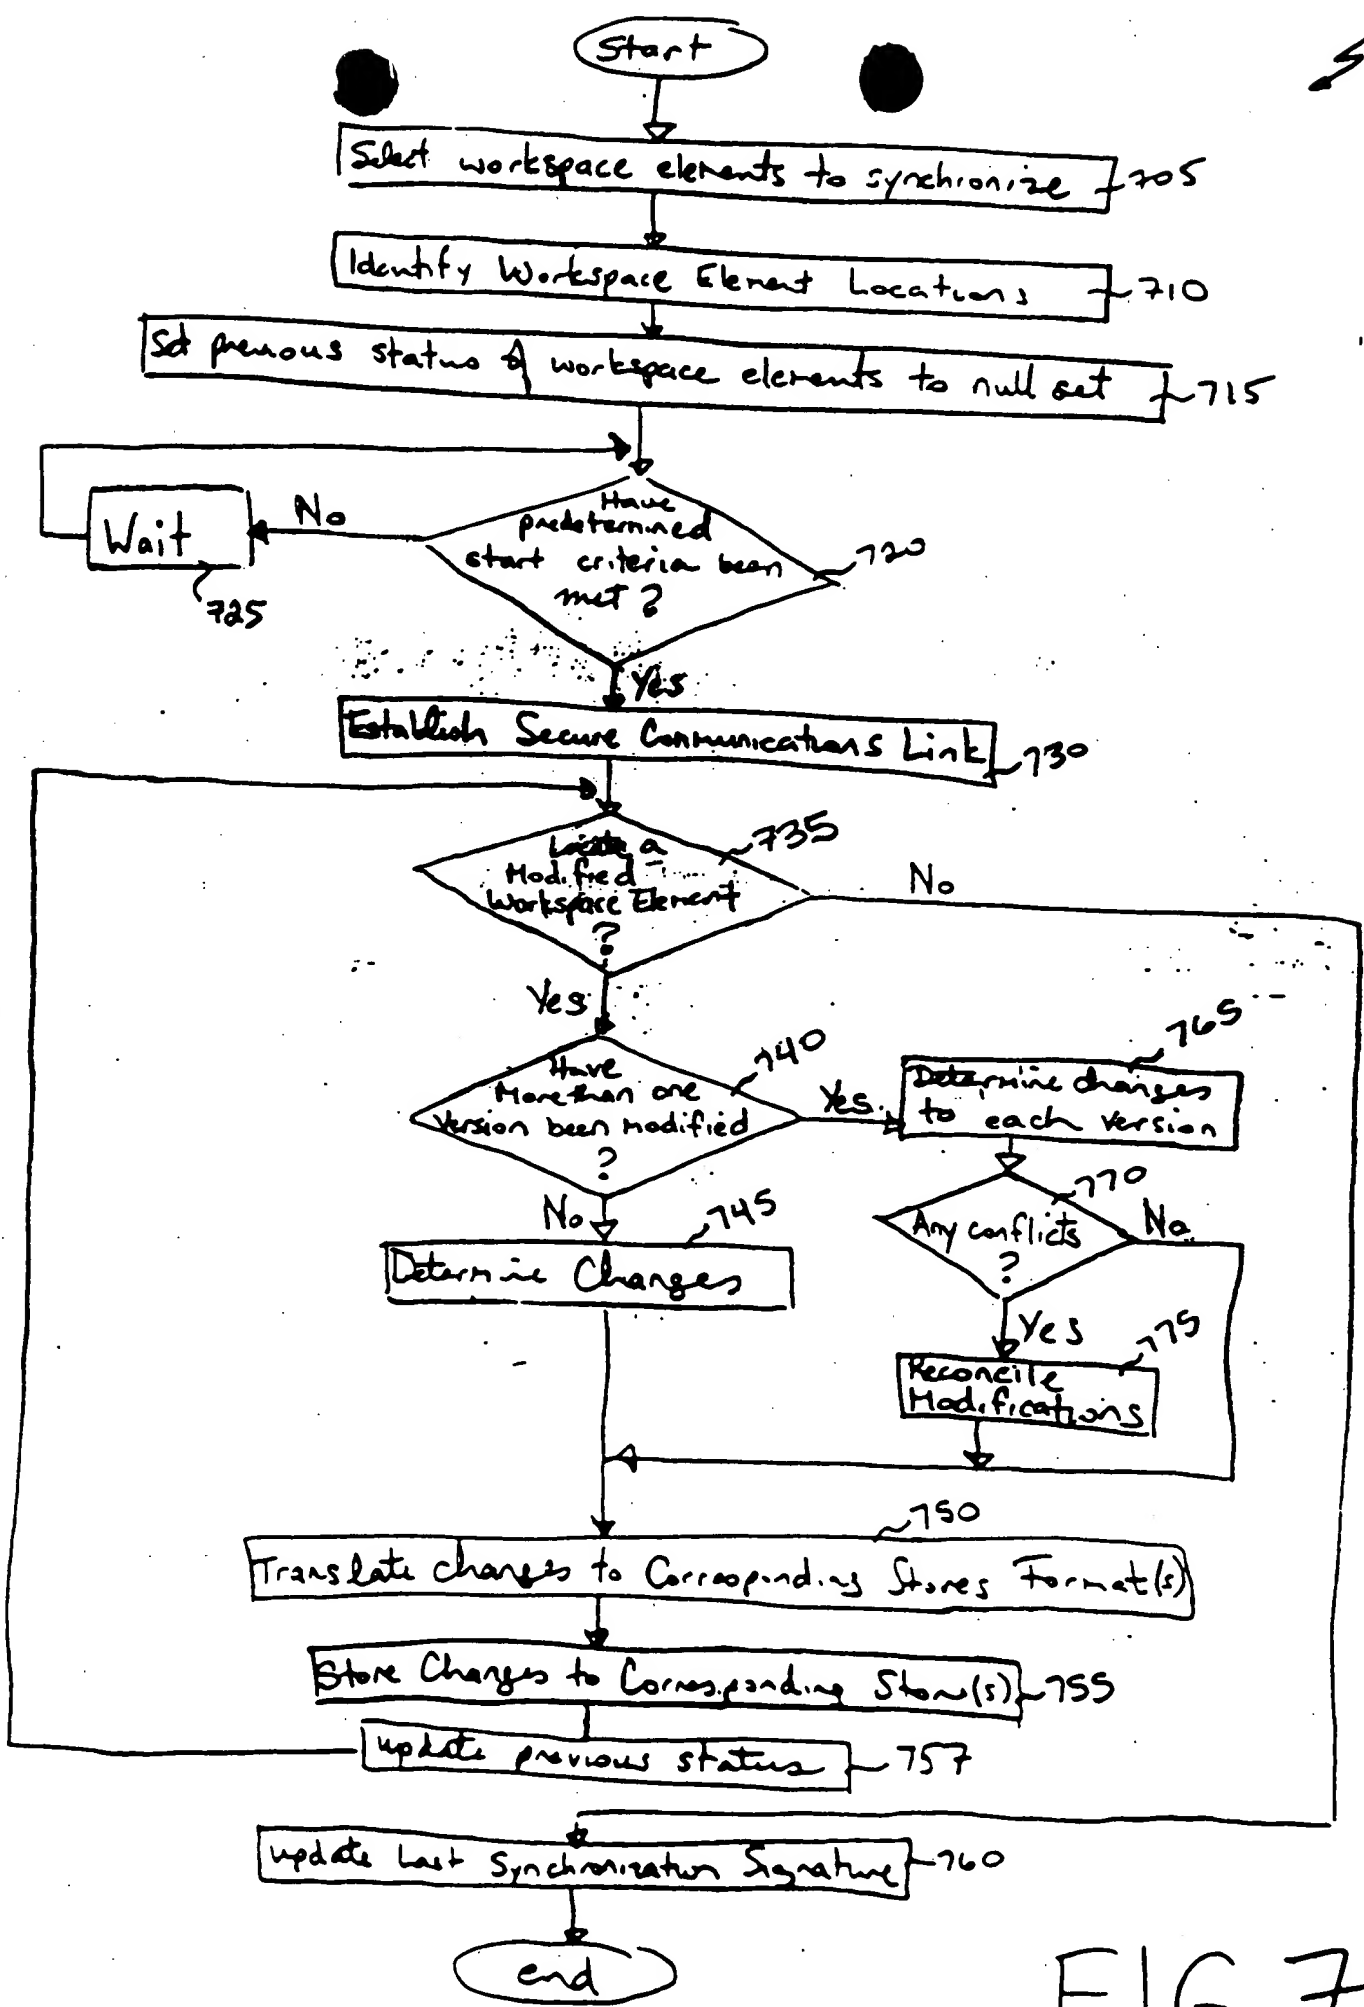 Start
Select workspace elements to synchronize 705
Identify Workspace Element Locations 710
Set previous status of workspace elements to null set 715
Have
predetermined
start criteria been
met ?
720
No
Wait
725
Yes
Establish Secure Communications Link 730
Locate a
Modified
Workspace Element
?
735
No
Yes
Have
More than one
Version been Modified
?
740
Yes
Determine changes
to each version
765
Any conflicts
?
770
No
Yes
Reconcile
Modifications
775
No
Determine Changes
745
750
Translate Changes to Corresponding Stores Format(s)
Store Changes to Corresponding Store(s) 755
update previous status 757
update Last Synchronization Signature 760
end
FIG 7